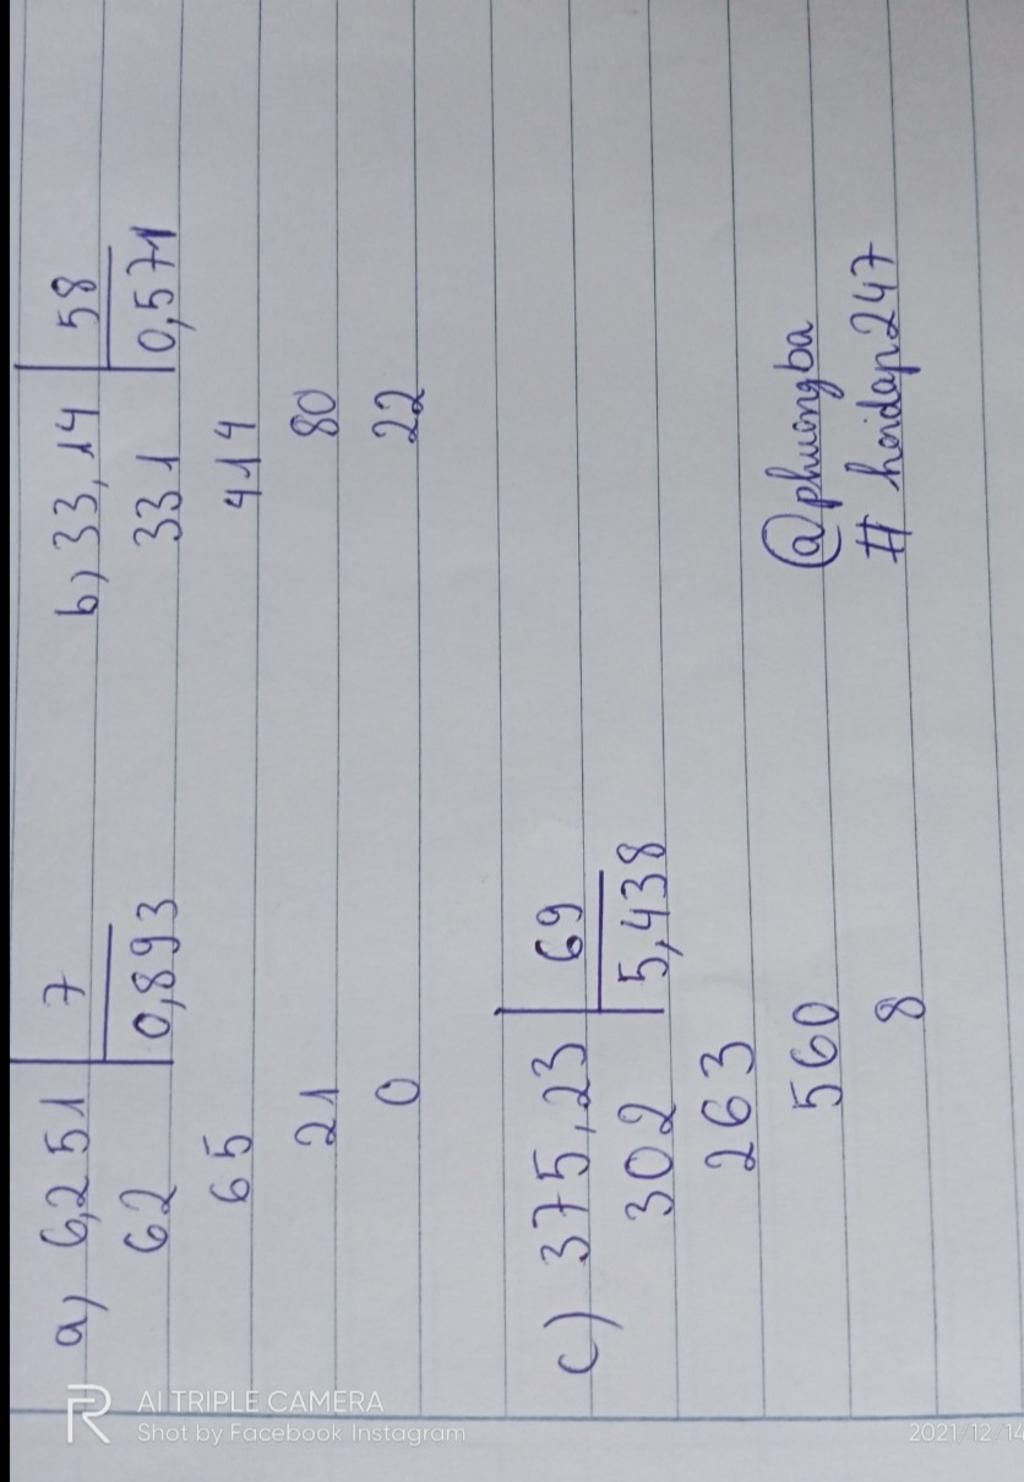 a) 6,251 7
62 0,893
65
21
0
b) 33,14 58
331 0,571
414
80
22
c) 375,23 69
302 5,438
263
560
8
@phuongba
# hoidap247
AI TRIPLE CAMERA
Shot by Facebook Instagram
2021/12/14